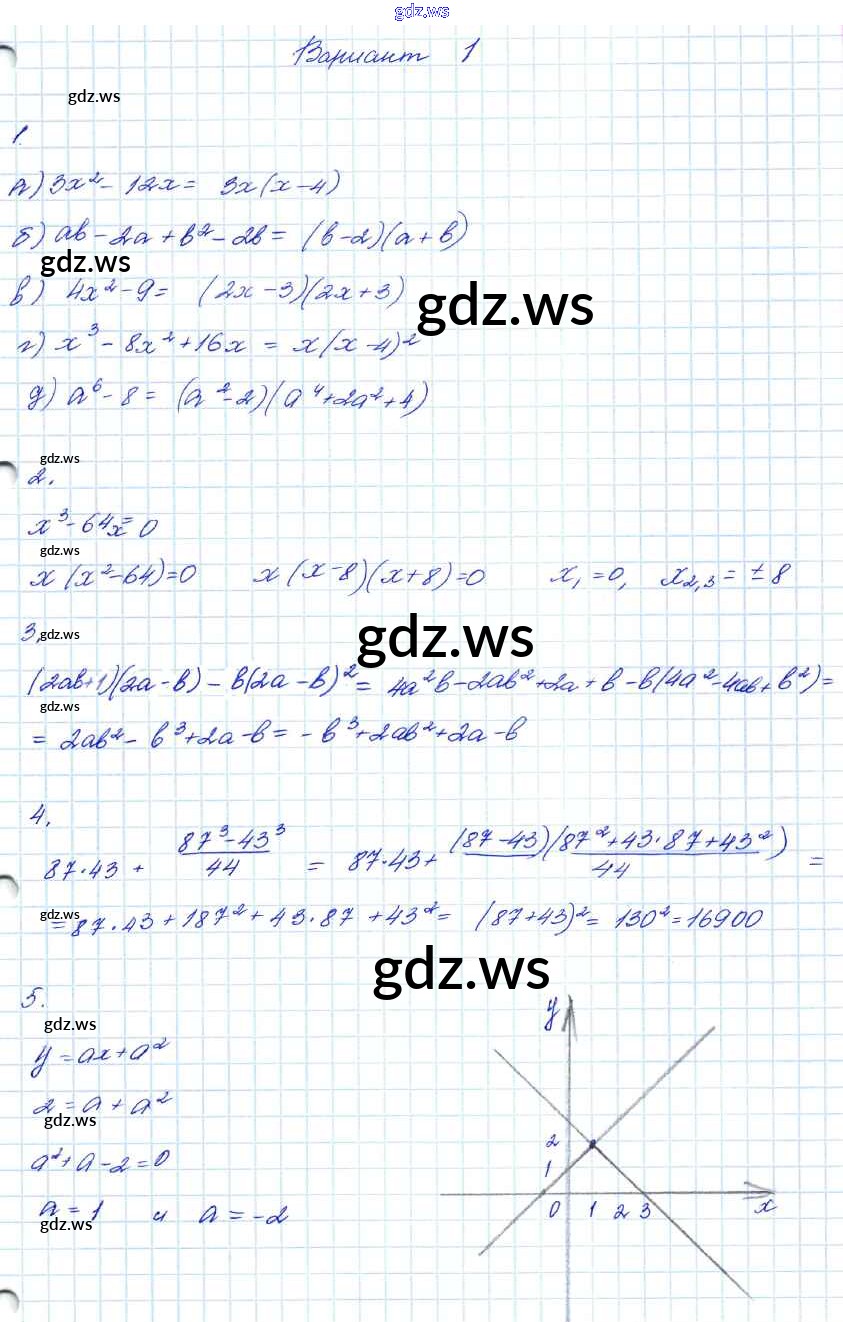 gdz.ws
Вариант 1
gdz.ws
1.
а) 3x² - 12x = 3x(x - 4)
б) ab - 2a + b² - 2b = (b - 2)(a + b)
gdz.ws
в) 4x² - 9 = (2x - 3)(2x + 3)
gdz.ws
г) x³ - 8x² + 16x = x(x - 4)²
д) a⁶ - 8 = (a² - 2)(a⁴ + 2a² + 4)
gdz.ws
2.
x³ - 64x = 0
gdz.ws
x(x² - 64) = 0 x(x - 8)(x + 8) = 0 x₁ = 0, x₂,₃ = ± 8
3,
gdz.ws
gdz.ws
(2ab + 1)(2a - b) - b(2a - b)² = 4a²b - 2ab² + 2a + b - b(4a² - 4ab + b²) =
gdz.ws
= 2ab² - b³ + 2a - b = - b³ + 2ab² + 2a - b
4,
87·43 + (87³ - 43³)/44 = 87·43 + (87 - 43)(87² + 43·87 + 43²)/44 =
gdz.ws
= 87·43 + 187² + 43·87 + 43² = (87 + 43)² = 130² = 16900
gdz.ws
5.
gdz.ws
y = ax + a²
2 = a + a²
gdz.ws
a² + a - 2 = 0
a = 1 и a = -2
gdz.ws
y
2
1
0 1 2 3 x